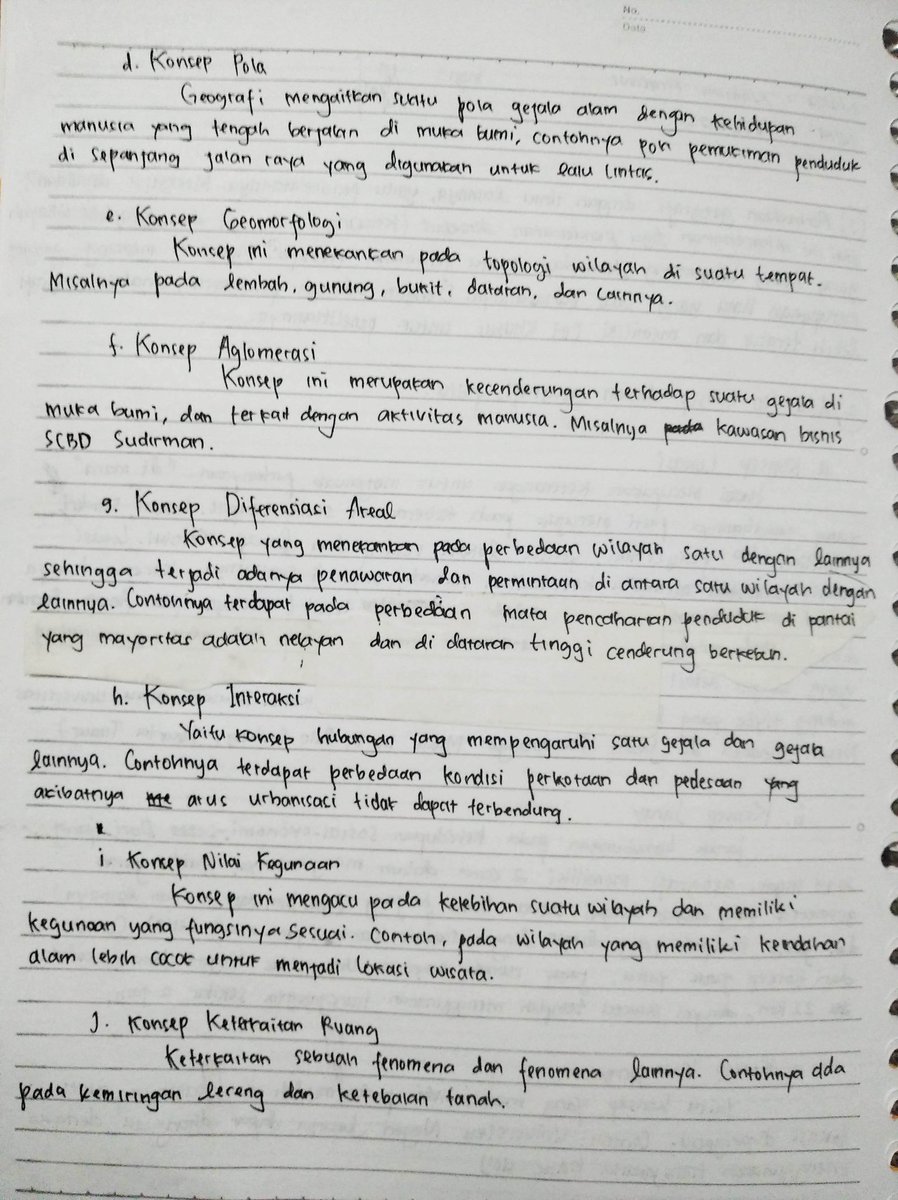 No.
Date
d. Konsep Pola
Geografi mengaitkan suatu pola gejala alam dengan kehidupan
manusia yang tengah berjalan di muka bumi, contohnya pon pemukiman penduduk
di sepanjang jalan raya yang digunakan untuk lalu lintas.
e. Konsep Geomorfologi
Konsep ini menekankan pada topologi wilayah di suatu tempat.
Misalnya pada lembah, gunung, bukit, dataran, dan lainnya.
f. Konsep Aglomerasi
Konsep ini merupakan kecenderungan terhadap suatu gejala di
muka bumi, dan terkait dengan aktivitas manusia. Misalnya pada kawasan bisnis
SCBD Sudirman.
g. Konsep Diferensiasi Areal
Konsep yang menekankan pada perbedaan wilayah satu dengan lainnya
sehingga terjadi adanya penawaran dan permintaan di antara satu wilayah dengan
lainnya. Contohnya terdapat pada perbedaan mata pencaharian penduduk di pantai
yang mayoritas adalah nelayan dan di dataran tinggi cenderung berkebun.
h. Konsep Interaksi
Yaitu konsep hubungan yang mempengaruhi satu gejala dan gejala
lainnya. Contohnya terdapat perbedaan kondisi perkotaan dan pedesaan yang
akibatnya arus urbanisasi tidak dapat terbendung.
i. Konsep Nilai Kegunaan
Konsep ini mengacu pada kelebihan suatu wilayah dan memiliki
kegunaan yang fungsinya sesuai. Contoh, pada wilayah yang memiliki keindahan
alam lebih cocok untuk menjadi lokasi wisata.
j. Konsep Keterkaitan Ruang
Keterkaitan sebuah fenomena dan fenomena lainnya. Contohnya ada
pada kemiringan lereng dan ketebalan tanah.